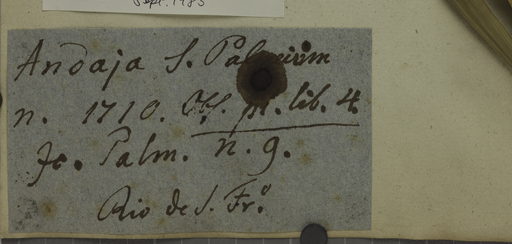 Sept. 1985
Andaja S. Palmium
n. 1710. Obs. pl. lib. 4.
Jc. Palm. n. 9.
Rio de S. Fr.º